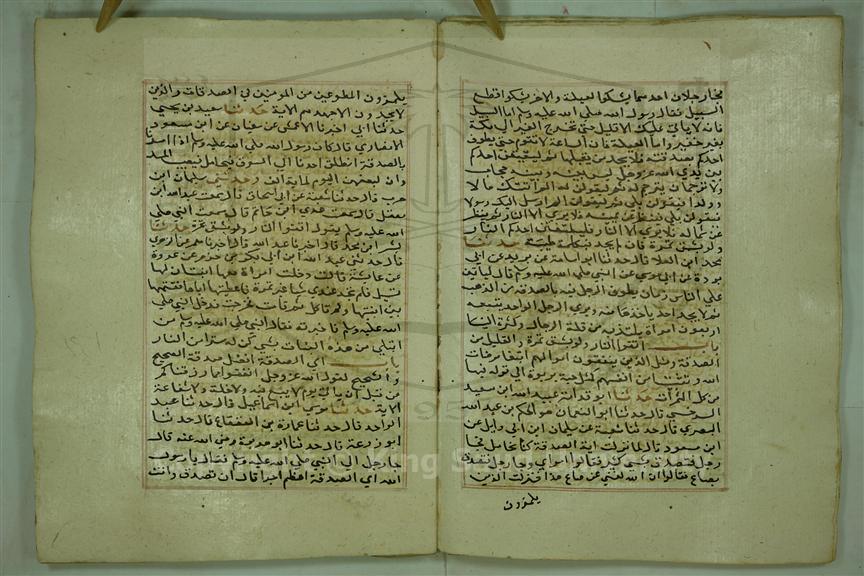 فجاءه رجلان احدهما يشكو العيلة والاخر يشكو قطع
السبيل فقال رسول الله صلى الله عليه وسلم اما السبيل
فانه لا ياتي عليك الا قليل حتى تخرج العير الى مكة
بغير خفير واما العيلة فان الساعة لا تقوم حتى يطوف
احدكم بصدقته فلا يجد من يقبلها ثم ليقفن احدكم
بين يدي الله عز وجل ليس بينه وبينه حجاب
ولا ترجمان يترجم له ثم ليقولن له الم اوتك مالا
وولدا فيقولن بلى ثم ليقولن الم ارسل اليك رسولا
فيقولن بلى فينظر عن يمينه فلا يرى الا النار ثم ينظر
عن شماله فلا يرى الا النار فليتقين احدكم النار
ولو بشق تمرة فان لم يجد فبكلمة طيبة حدثنا
محمد ابن العلا قال حدثنا ابو اسامة عن بريد عن ابي
بردة عن ابي موسى عن النبي صلى الله عليه وسلم قال لياتين
على الناس زمان يطوف الرجل فيه بالصدقة من الذهب
ثم لا يجد احد ياخذها منه ويرى الرجل الواحد يتبعه
اربعون امراة يلذن به من قلة الرجال وكثرة النسا
باب اتقوا النار ولو بشق تمرة والقليل من
الصدقة ومثل الذين ينفقون اموالهم ابتغا مرضات
الله وتثبيتا من انفسهم كمثل جنة بربوة الى قوله فيها
من كل الثمرات حدثنا ابو قدامة عبيد الله ابن سعيد
السرخسي قال حدثنا ابو النعمان هو الحكم بن عبد الله
البصري قال حدثنا شعبة عن سليمان عن ابي وايل عن
ابن مسعود قال لما نزلت اية الصدقة كنا نحامل فجا
رجل فتصدق بشي كثير فقالوا مراي وجا رجل فتصدق
بصاع فقالوا ان الله لغني عن صاع هذا فنزلت الذين
يلمزون
يلمزون المطوعين من المومنين في الصدقات والذين
لا يجدون الا جهدهم الاية حدثنا سعيد بن يحيى
حدثنا ابي اخبرنا الاعمش عن سفيان عن ابن مسعود
الانصاري قال كان رسول الله صلى الله عليه وسلم اذا امرنا
بالصدقة انطلق احدنا الى السوق فيحامل فيصيب المد
وان لبعضهم اليوم لماية الف وحدثني سليمان ابن
حرب قال حدثنا شعبة عن ابي اسحاق قال سمعت عبد الله ابن
معقل قال سمعت عدي ابن حاتم قال سمعت النبي صلى
الله عليه وسلم يقول اتقوا النار ولو بشق تمرة حدثنا
بشر ابن محمد قال اخبرنا عبد الله قال اخبرنا معمر عن الزهري
قال حدثني عبد الله ابن ابي بكر بن حزم عن عروة
عن عائشة قالت دخلت امراة معها ابنتان لها
تسل فلم تجد عندي شيا غير تمرة فاعطيتها اياها فقسمتها
بين ابنتيها ولم تاكل منها ثم قامت فخرجت فدخل النبي صلى
الله عليه وسلم فاخبرته فقال النبي صلى الله عليه وسلم من
ابتلي من هذه البنات بشي كن له سترا من النار
باب اي الصدقة افضل صدقة الصحيح
والشحيح لقول الله عز وجل انفقوا مما رزقناكم
من قبل ان ياتي يوم لا بيع فيه ولا خلة ولا شفاعة
الاية حدثنا موسى ابن اسماعيل قال حدثنا عبد
الواحد قال حدثنا عمارة بن القعقاع قال حدثنا
ابو زرعة قال حدثنا ابو هريرة رضي الله عنه قال
جا رجل الى النبي صلى الله عليه وسلم فقال يا رسول
الله اي الصدقة اعظم اجرا قال ان تصدق وانت